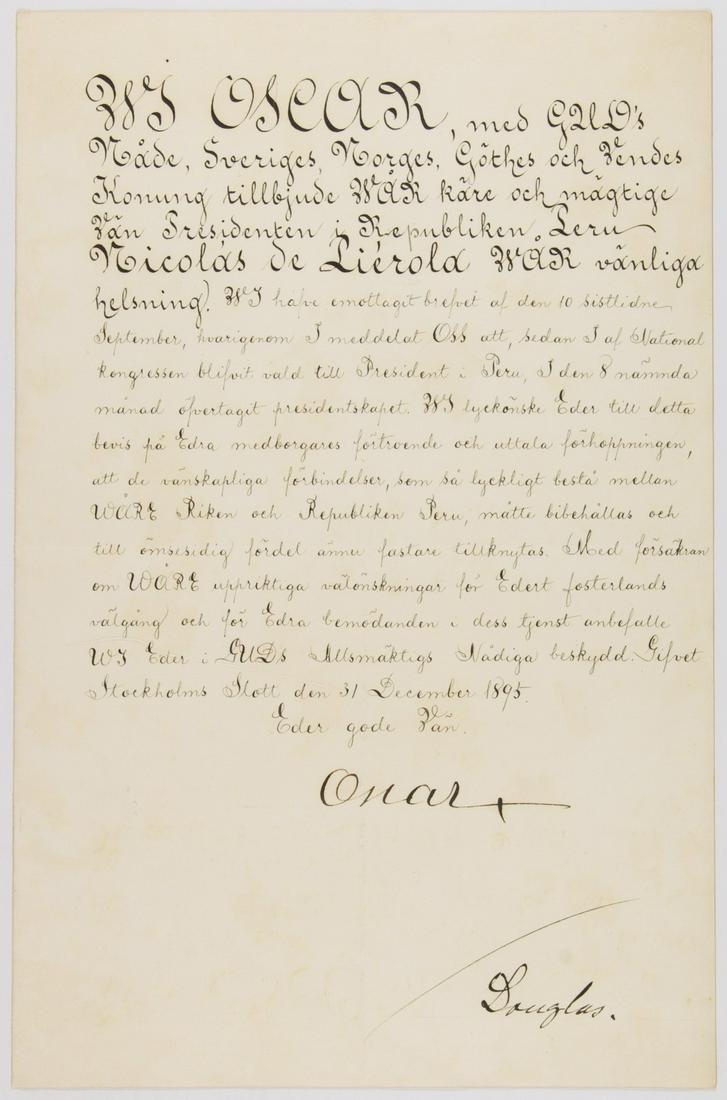 WI OSCAR, med GUD's
Nåde, Sveriges, Norges, Göthes och Vendes
Konung tillbjude WÅR käre och mägtige
Vän Presidenten i Republiken Peru
Nicolás de Piérola WÅR vänliga
helsning. WI hafve emottagit brefvet af den 10 sistlidne
September, hvarigenom I meddelat OSS att, sedan I af National
kongressen blifvit vald till President i Peru, I den 8 nämnda
månad öfvertagit presidentskapet. WI lyckönske Eder till detta
bevis på Edra medborgares förtroende och uttala förhoppningen,
att de vänskapliga förbindelser, som så lyckligt bestå mellan
WÅRE Riken och Republiken Peru, måtte bibehållas och
till ömsesidig fördel ännu fastare tillknytas. Med försäkran
om WÅRE uppriktiga välönskningar för Edert fosterlands
välgång och för Edra bemödanden i dess tjenst anbefalle
WI Eder i GUDs Allsmäktigs Nådiga beskydd. Gifvet
Stockholms Slott den 31 December 1895.
Eder gode Vän.
Oscar
Douglas.